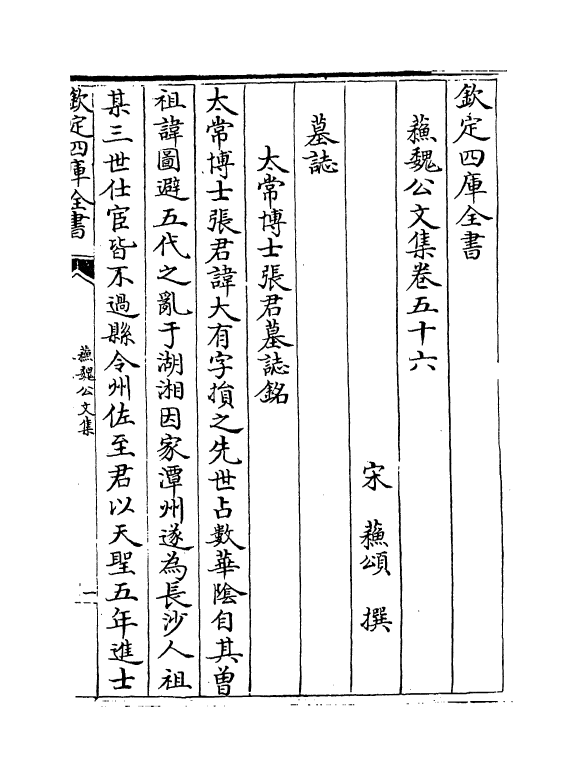 欽定四庫全書
蘓魏公文集卷五十六
宋 蘓頌 撰
墓誌
太常博士張君墓誌銘
太常博士張君諱大有字損之先世占數華陰自其曾
祖諱圖避五代之亂于湖湘因家潭州遂為長沙人祖
某三世仕宦皆不過縣令州佐至君以天聖五年進士
欽定四庫全書
蘓魏公文集
一